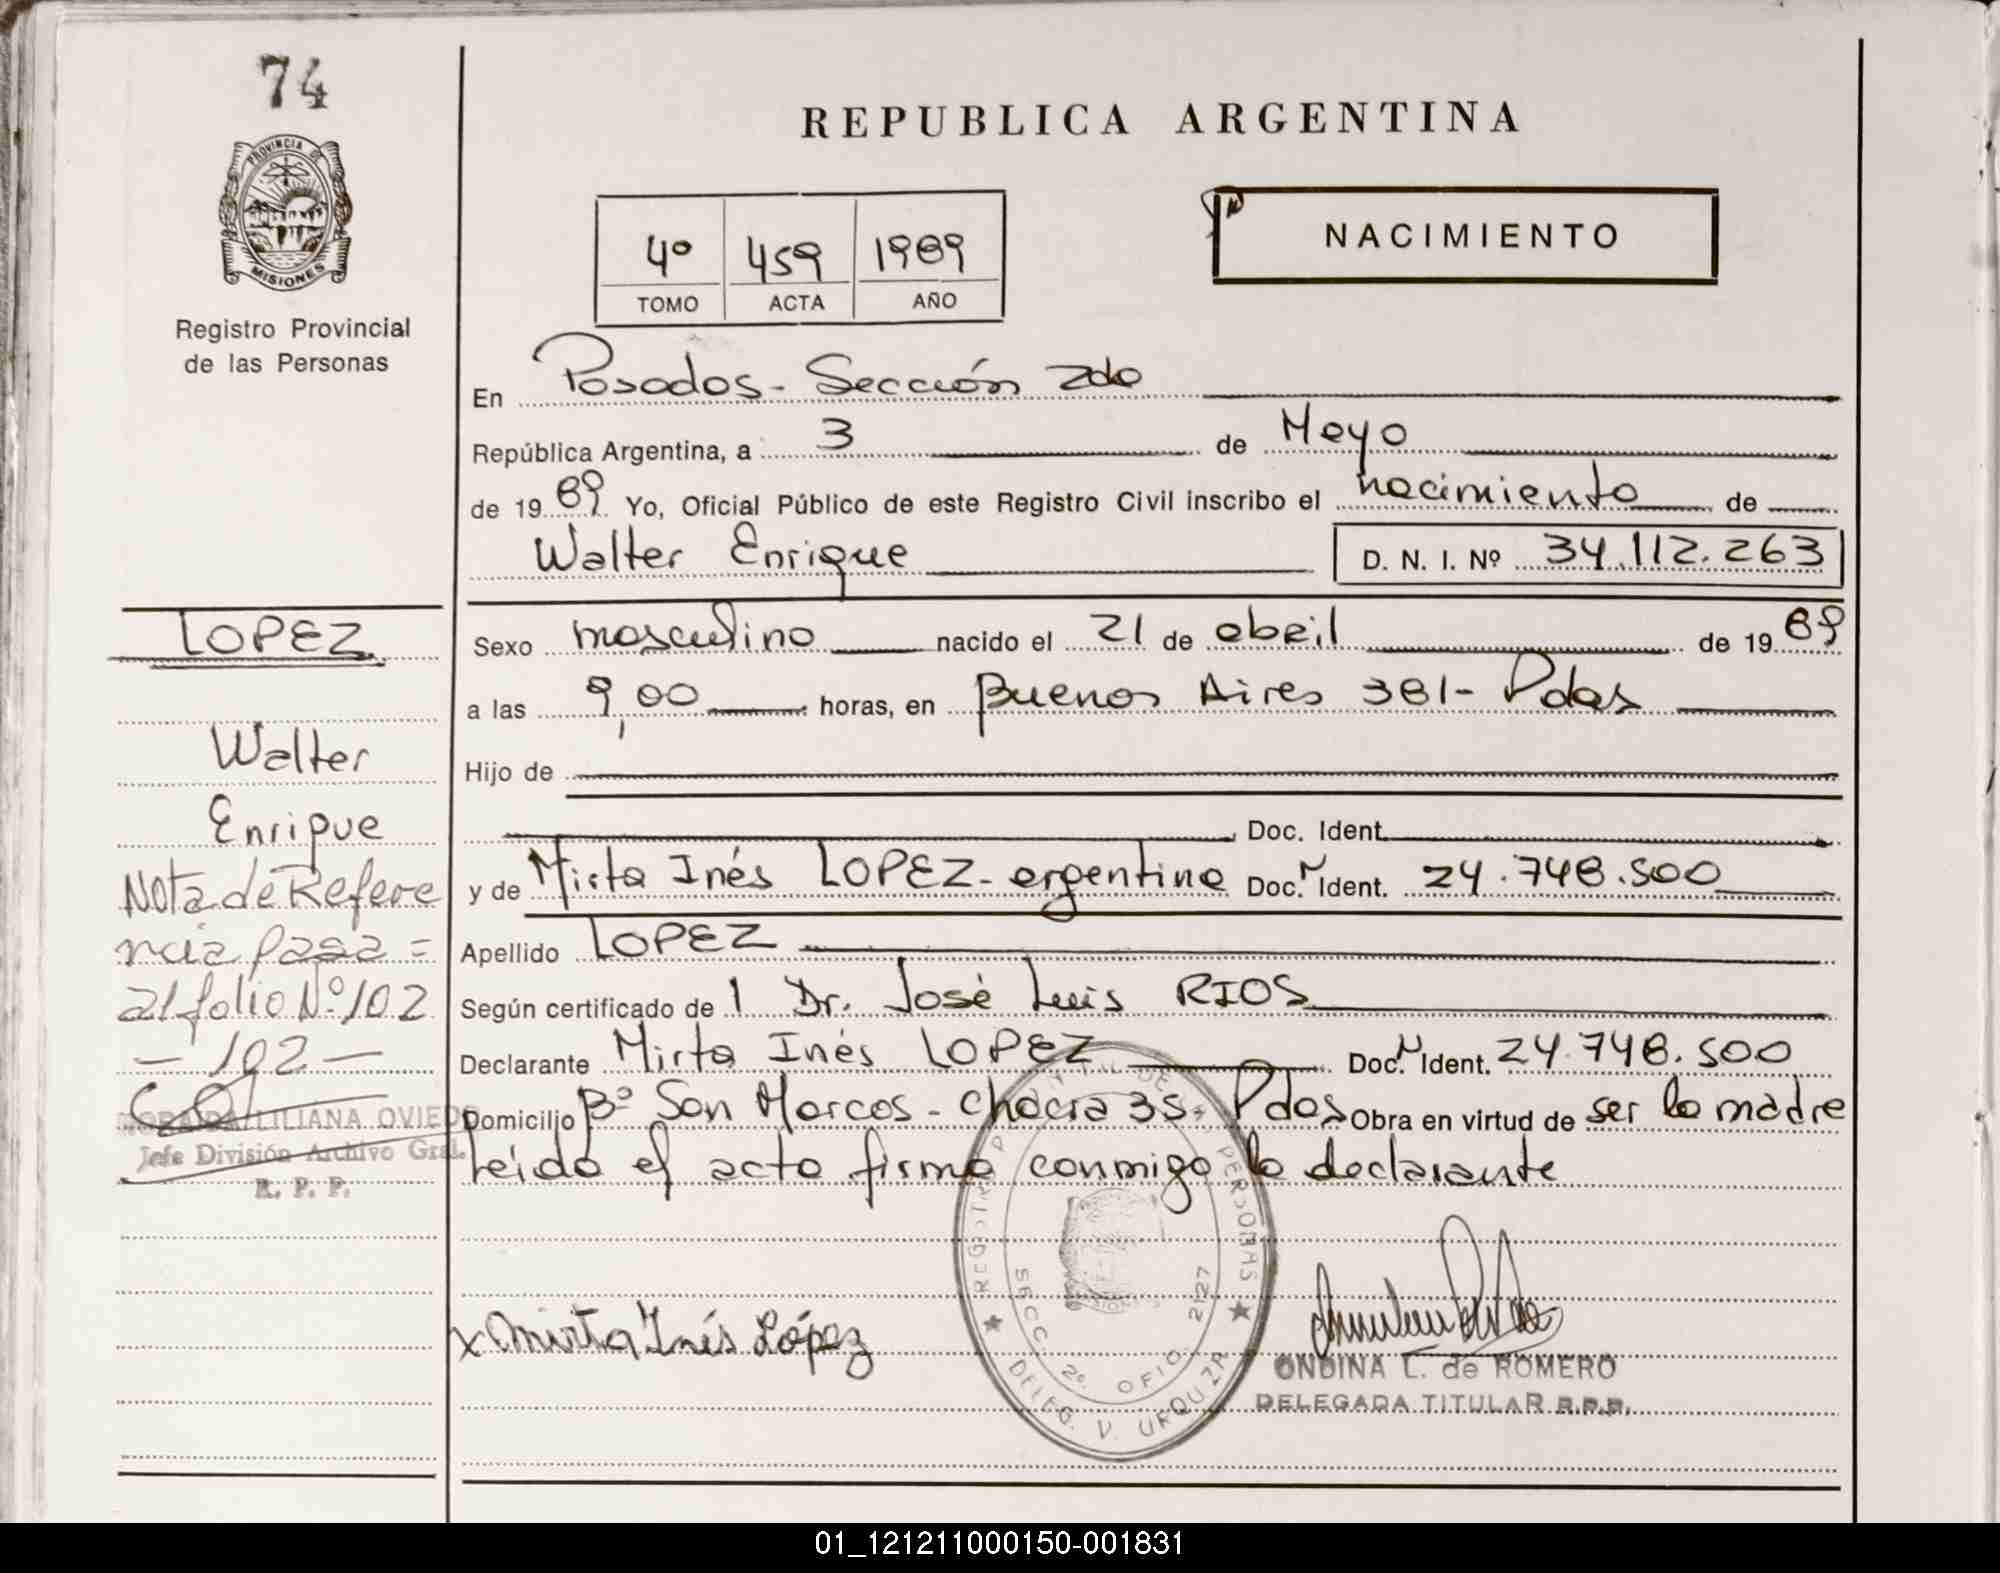 74
REPUBLICA ARGENTINA
PROVINCIA DE
MISIONES
Registro Provincial
de las Personas
4º 459 1989
TOMO ACTA AÑO
NACIMIENTO
En Posadas - Sección 2da
República Argentina, a 3 de Mayo
de 1989 Yo, Oficial Público de este Registro Civil inscribo el nacimiento de
Walter Enrique D. N. I. Nº 34.112.263
Sexo masculino nacido el 21 de abril de 1989
a las 9,00 horas, en Buenos Aires 381 - Pdas
Hijo de
Doc. Ident.
y de Mirta Inés LOPEZ - argentina Doc. N Ident. 24.748.500
Apellido LOPEZ
Según certificado de l Dr. José Luis RIOS
Declarante Mirta Inés LOPEZ Doc. N Ident. 24.748.500
Domicilio Bº San Marcos - Chacra 35 - Pdas Obra en virtud de ser la madre
leída el acta firma conmigo la declarante
LOPEZ
Walter
Enrique
Nota de Refere
ncia pasa =
al folio Nº 102
- 102 -
LILIANA OVIEDO
Jefe División Archivo Gral.
R. P. P.
x Mirta Inés López
PERSONAS
SECC. 2º. OFIC. 2127
DELEG. V. URQUIZA
ONDINA L. de ROMERO
DELEGADA TITULAR R.P.P.
01_121211000150-001831